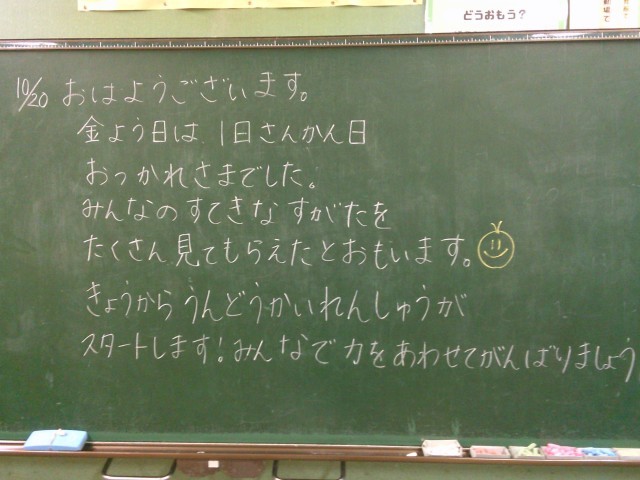 どうおもう?
10/20 おはようございます。
金よう日は 1日さんかん日
おつかれさまでした。
みんなのすてきな すがたを
たくさん見てもらえたとおもいます。
きょうから うんどうかいれんしゅうが
スタートします!みんなで力をあわせてがんばりましょう